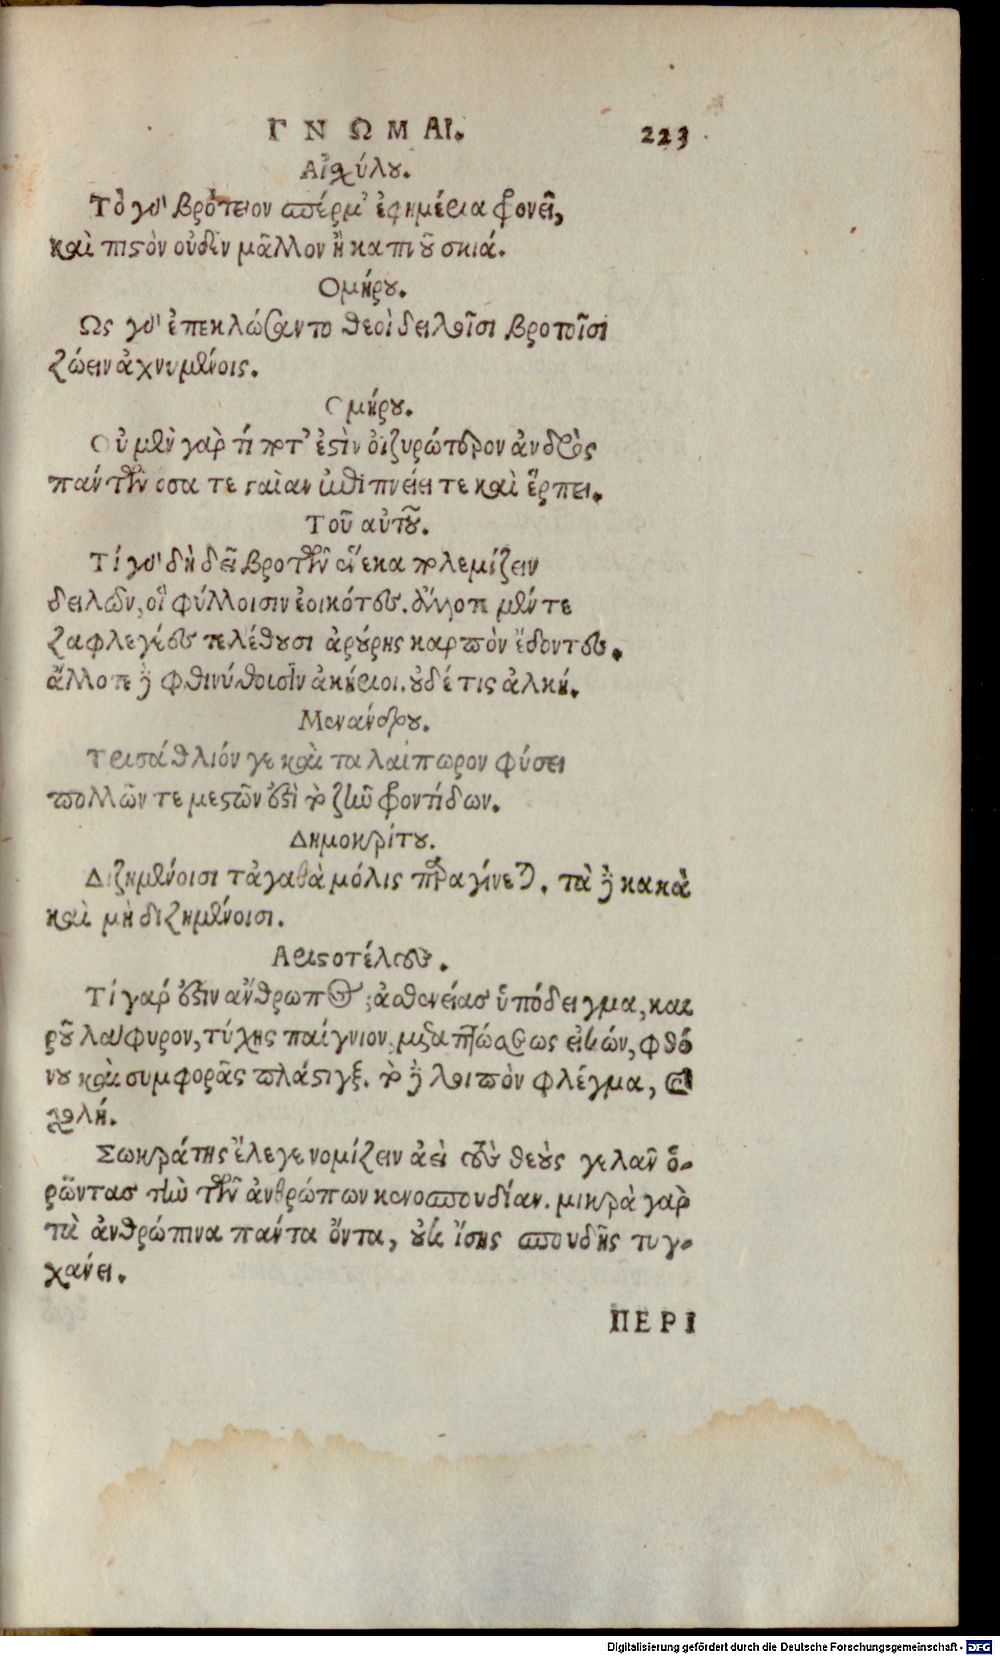 ΓΝΩΜΑΙ. 223
Αἰσχύλου.
Τὸ γὰρ βρότειον σπέρμ' ἐφημέρια φρονεῖ,
καὶ πιστὸν οὐδὲν μᾶλλον ἢ καπνοῦ σκιά.
Ομήρου.
Ως γὰρ ἐπεκλώσαντο θεοὶ δειλοῖσι βροτοῖσι
ζώειν ἀχνυμένοις.
Ομήρου.
Οὐ μὲν γὰρ τί ποτ' ἐστὶν ὀϊζυρώτερον ἀνδρὸς
πάντων ὅσα τε γαῖαν ἐπὶ πνείει τε καὶ ἕρπει.
Τοῦ αὐτοῦ.
Τί γὰρ δὴ δεῖ βροτῶν ἕνεκα πολεμίζειν
δειλῶν, οἳ φύλλοισιν ἐοικότες. ἄλλοτε μέν τε
ζαφλεγέες τελέθουσι ἀρούρης καρπὸν ἔδοντες.
ἄλλοτε δὲ φθινύθουσιν ἀκήριοι. οὐδέ τις ἀλκή.
Μενάνδρου.
Τρισάθλιόν γε καὶ ταλαίπωρον φύσει
πολλῶν τε μεστῶν ἐστὶ τὸ ζῆν φροντίδων.
Δημοκρίτου.
Διζημένοισι τἀγαθὰ μόλις παραγίνεται. τὰ δὲ κακὰ
καὶ μὴ διζημένοισι.
Αριστοτέλους.
Τί γάρ ἐστιν ἄνθρωπος; ἀσθενείας ὑπόδειγμα, και
ροῦ λάφυρον, τύχης παίγνιον, μεταπτώσεως εἰκών, φθό
νου καὶ συμφορᾶς πλάστιγξ. τὸ δὲ λοιπὸν φλέγμα, καὶ
χολή.
Σωκράτης ἔλεγε νομίζειν ἀεὶ τοὺς θεοὺς γελᾶν ὁ-
ρῶντας τὴν τῶν ἀνθρώπων κενοσπουδίαν. μικρὰ γὰρ
τὰ ἀνθρώπινα πάντα ὄντα, οὐκ ἴσης σπουδῆς τυγ-
χάνει.
ΠΕΡΙ
Digitalisierung gefördert durch die Deutsche Forschungsgemeinschaft - DFG